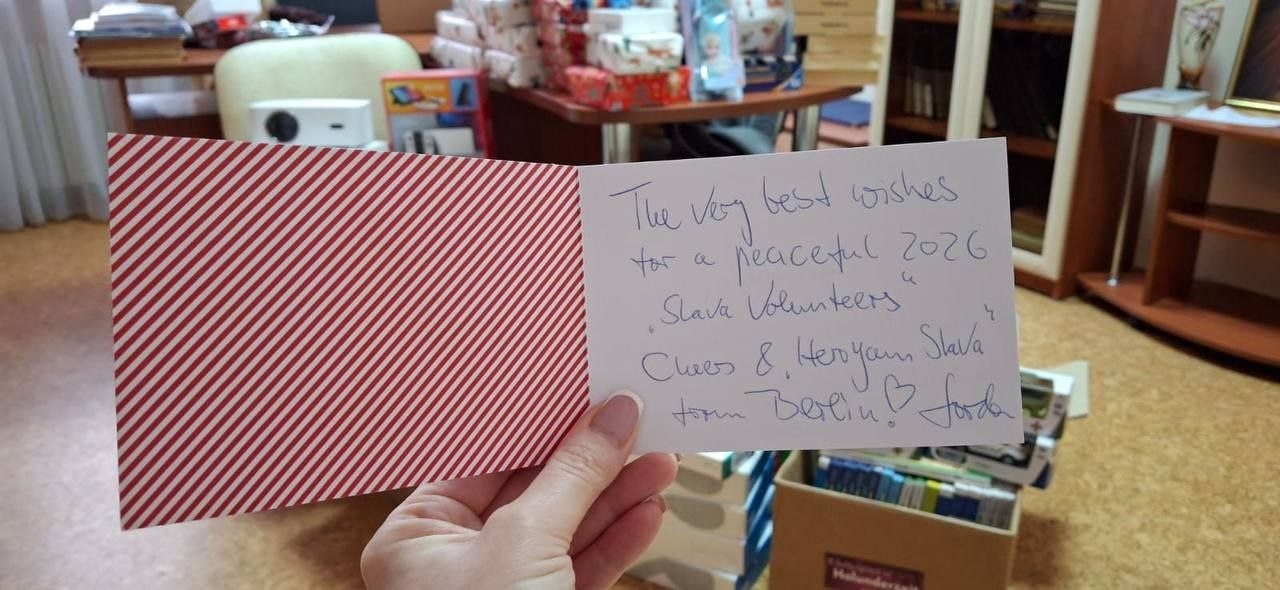 The very best wishes
for a peaceful 2026
„Slava Volunteers“
Cheers & „Heroyam Slava“
from Berlin! ♡
Holunderzeit